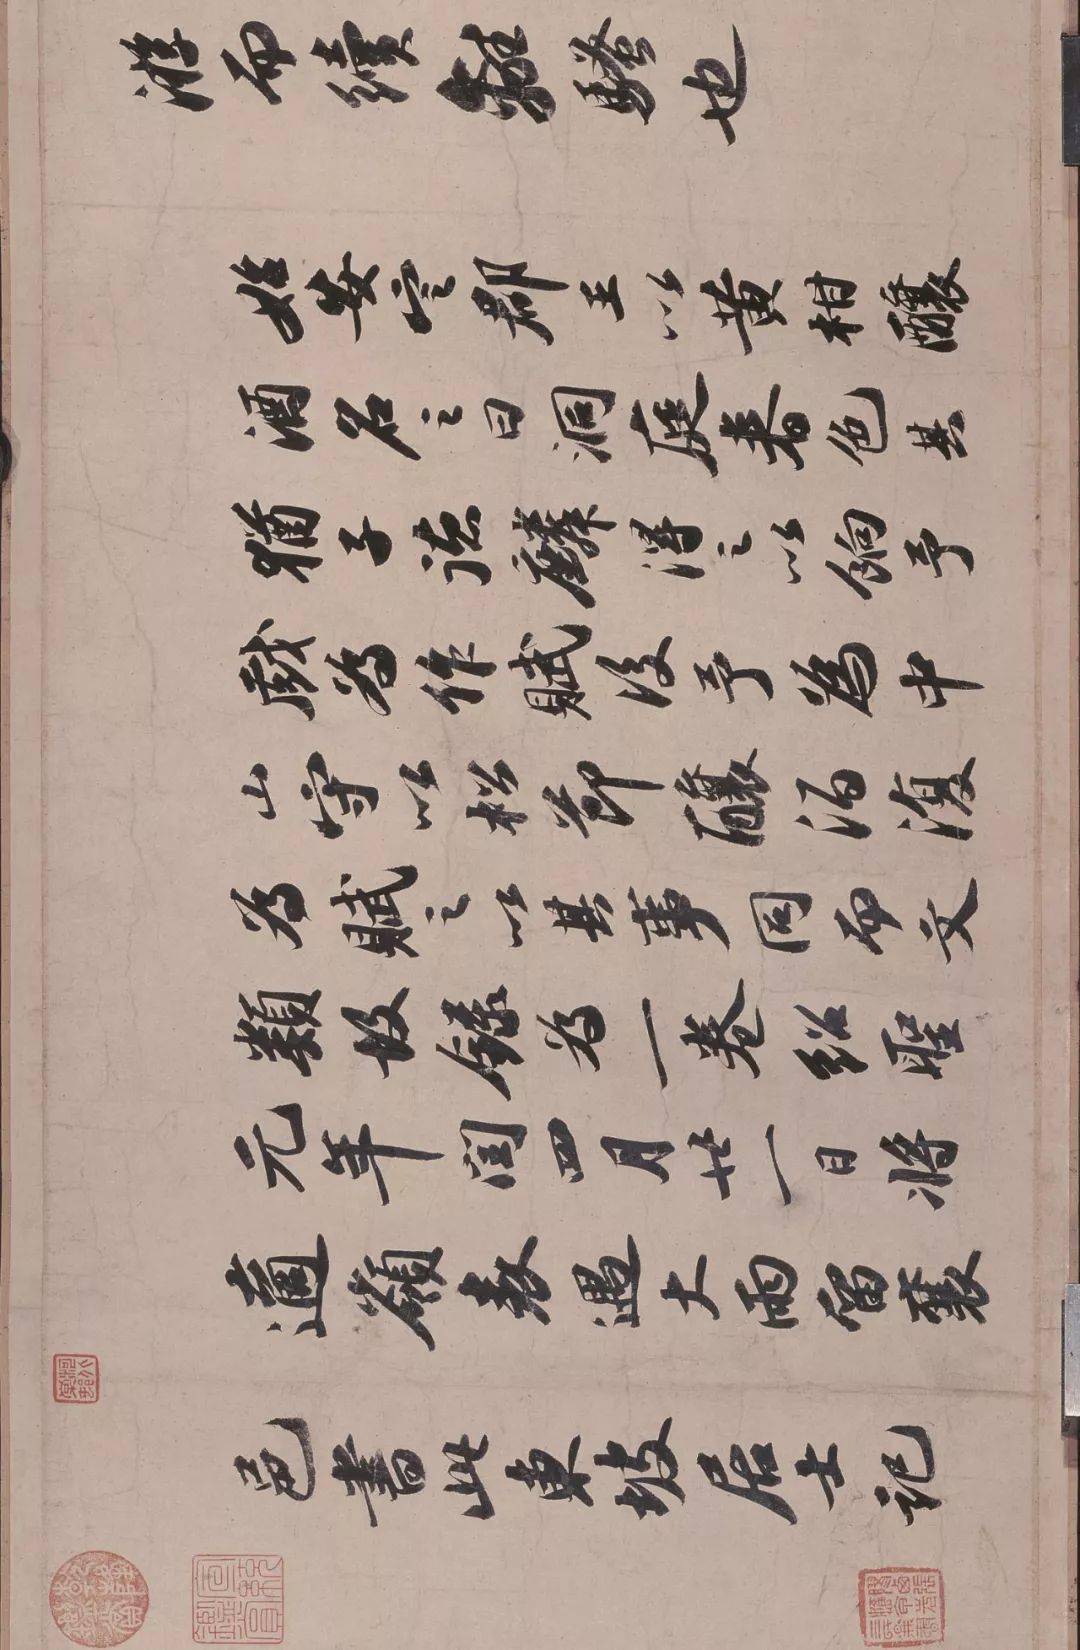 游而續離騷也
始安定郡王以黄柑釀
酒名之曰洞庭春色其
猶子德麟得之以餉予
戲為作賦後予為中
山守以松節釀酒復
為賦之以其事同而文
類故錄為一卷紹聖
元年閏四月廿一日將
適嶺表遇大雨留襄
邑書此東坡居士記